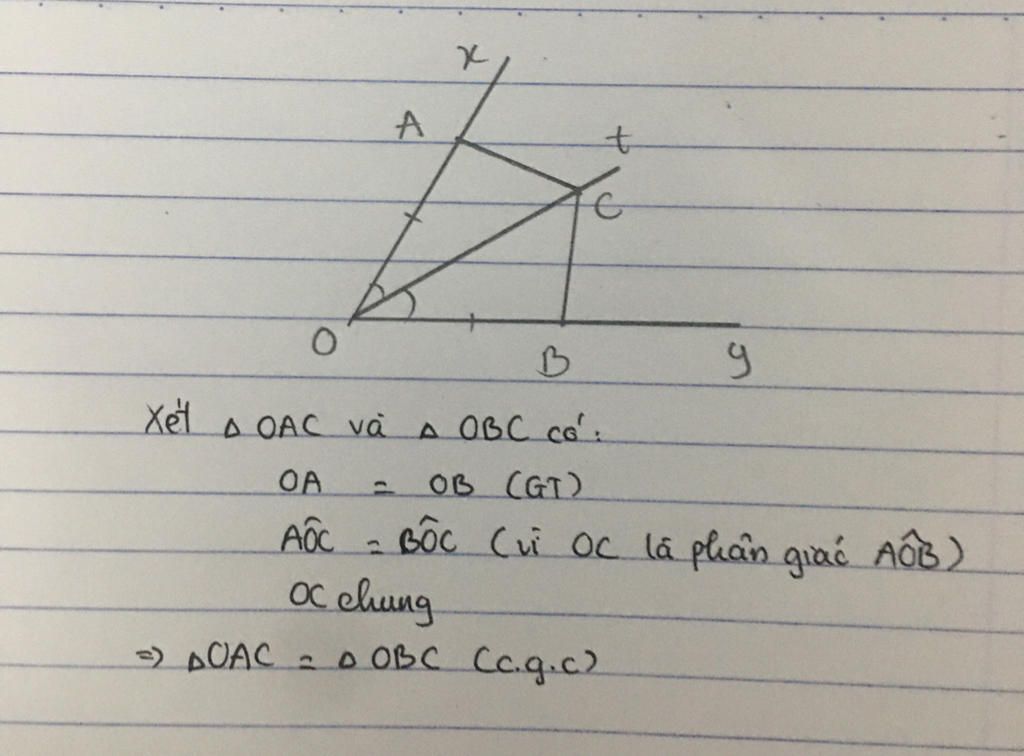 x
A
t
C
O
B
y
Xét △ OAC và △ OBC có:
OA = OB (GT)
AÔC = BÔC (vì OC là phân giác AÔB)
OC chung
=> △OAC = △ OBC (c.g.c)